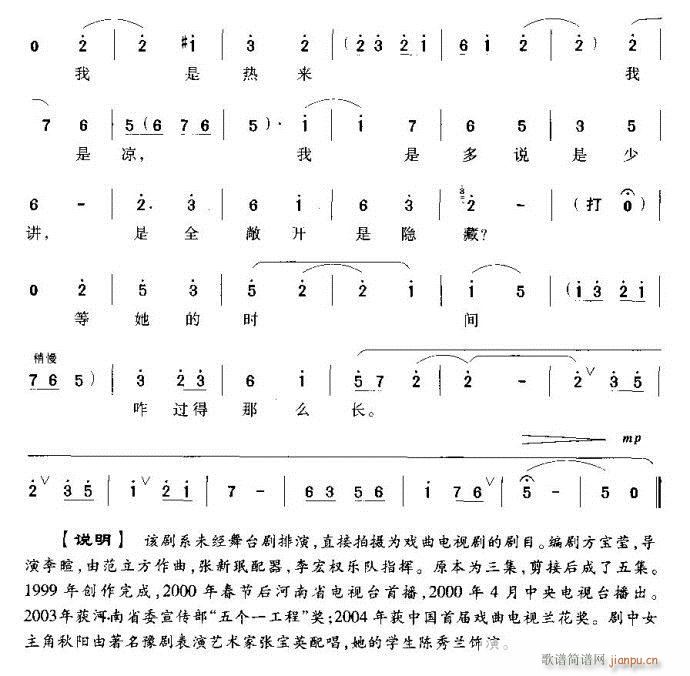 0 2 | 2 #1 | 3 2 | (2 3 2 1 | 6 1 2 | 2) 2
我 是 热 来 我
7 6 | 5 (6 7 6 | 5)· 1 | 1 7 | 6 5 | 3 5
是 凉， 我 是 多 说 是 少
6 - | 2· 3 | 6 1 | 6 3 | 3 2 - | (打 0
讲， 是 全 敞 开 是 隐 藏？
0 2 | 5 3 | 5 2 | 2 1 | 1 5 | (1 3 2 1
等 她 的 时 间
稍慢
7 6 5) | 3 2 3 | 6 1 | 5 7 2 | 2 - | 2 ∨ 3 5
咋 过 得 那 么 长。
mp
2 ∨ 3 5 | 1 ∨ 2 1 | 7 - | 6 3 5 6 | 1 7 6 ∨ | 5 - | 5 0 ‖
【说明】 该剧系未经舞台剧排演，直接拍摄为戏曲电视剧的剧目。编剧方宝莹，导
演李暄，由范立方作曲，张新珉配器，李宏权乐队指挥。原本为三集，剪接后成了五集。
1999年创作完成，2000年春节后河南省电视台首播，2000年4月中央电视台播出。
2003年获河南省委宣传部“五个一工程”奖；2004年获中国首届戏曲电视兰花奖。剧中女
主角秋阳由著名豫剧表演艺术家张宝英配唱，她的学生陈秀兰饰演。
歌谱简谱网
jianpu.cn